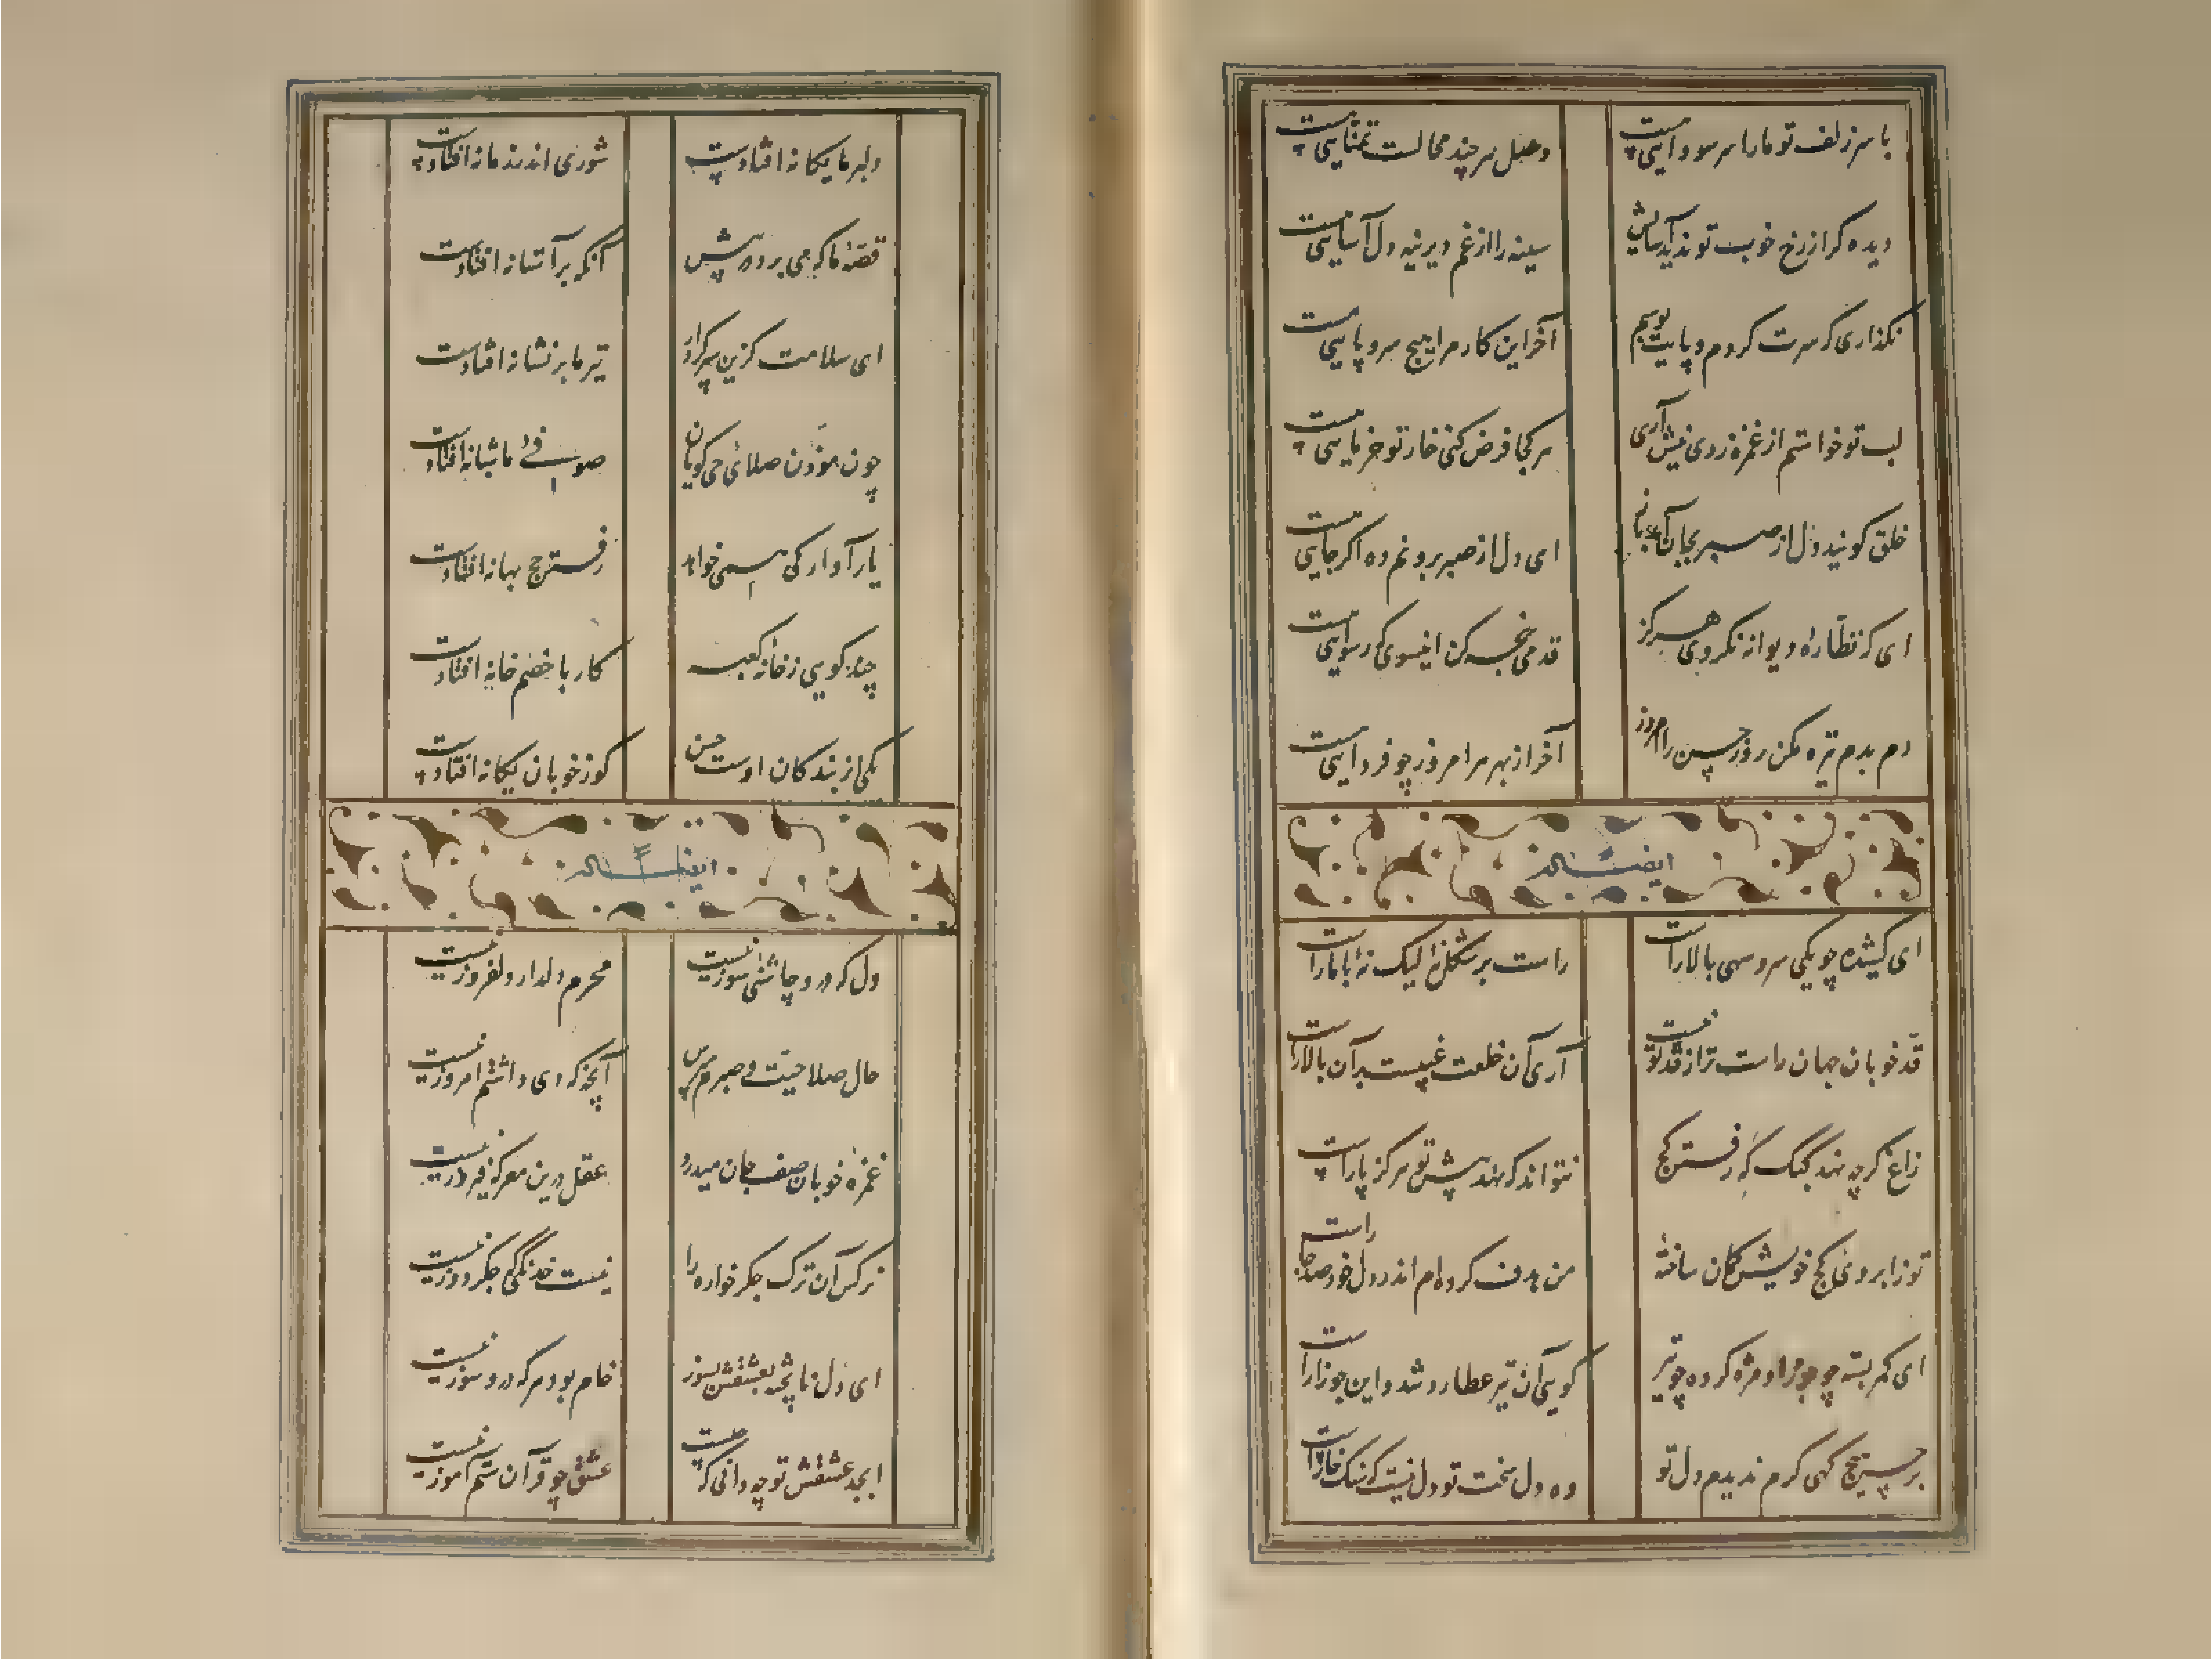 با سر زلف تو ما را سر سودایی هست
وصل هر چند محالست تمنایی هست
دیده کر از رخ خوب تو ندید آسایش
سینه را از غم دیرینه دل آسایی هست
نکذاری که سرت کردم و پایت بوسم
آخر این کار مرا هیچ سر و پایی هست
لب تو خواستم از غمزه زدی نیش آری
هر کجا فرض کنی خار تو خرمایی هست
خلق کویند دل از صبر بجای آید باز
ای دل از صبر برو غم ده اکر جایی هست
ای که نظاره دیوانه نکردی هرکز
قدمی رنجه کن اینسوی که رسوایی هست
دم بدم تیره مکن روز حسن را امروز
آخر از بهر مرا امروز چو فردایی هست
ایضاً له
ای کشیده چو یکی سرو سهی بالا راست
راست بر شکل نهٔ لیک نهٔ با ما راست
قد خوبان جهان راست تر از قد تو نیست
آری آن خلعت غیبیست بر آن بالا راست
زاغ کرچه نهد کبک که رفتن کج
نتواند که نهد پیش تو هرکز پا راست
تو ز ابروی کج خویش کمان ساخته
من هدف کرده‌ام اندر دل خود صد جا راست
ای کمر بسته چو جوزا و مژه کرده چو تیر
کویی آن تیر عطارد شد و این جوزا راست
بر حسن هیچ کهی کرم ندیدم دل تو
وه دل سخت تو دل نیست که سنک خاراست
دلبر ما یکانه افتادست
شوری اندر زمانه افتادست
قصهٔ ما که می برد پیش
آنکه بر آستانه افتادست
ای سلامت کزین سر کرد آر
تیر ما بر نشانه افتادست
چون موذن صلای حی کویان
صوفی ما شبانه افتادست
یار آوارکی همی خواهد
رفتن حج بهانه افتادست
چند کویی ز خانه کعبه
کار با خصم خانه افتادست
یکی از بندکان اوست حسن
کوز خوبان یکانه افتادست
ایضاً له
دل که درو چاشنی سوز نیست
محرم دلدار دلفروز نیست
حال صلاحیت و صبرم مپرس
آنچه که دی داشتم امروز نیست
غمزه خوبان صف جان میدرد
عقل درین معرکه فیروز نیست
نرکس آن ترک جکر خواره را
نیست خدنکی که جکردوز نیست
ای دل ناپخته بعشقش بسوز
خام بود هر که درو سوز نیست
ابجد عشقش تو چه دانی که چیست
عشق چو قرآن ستم آموز نیست